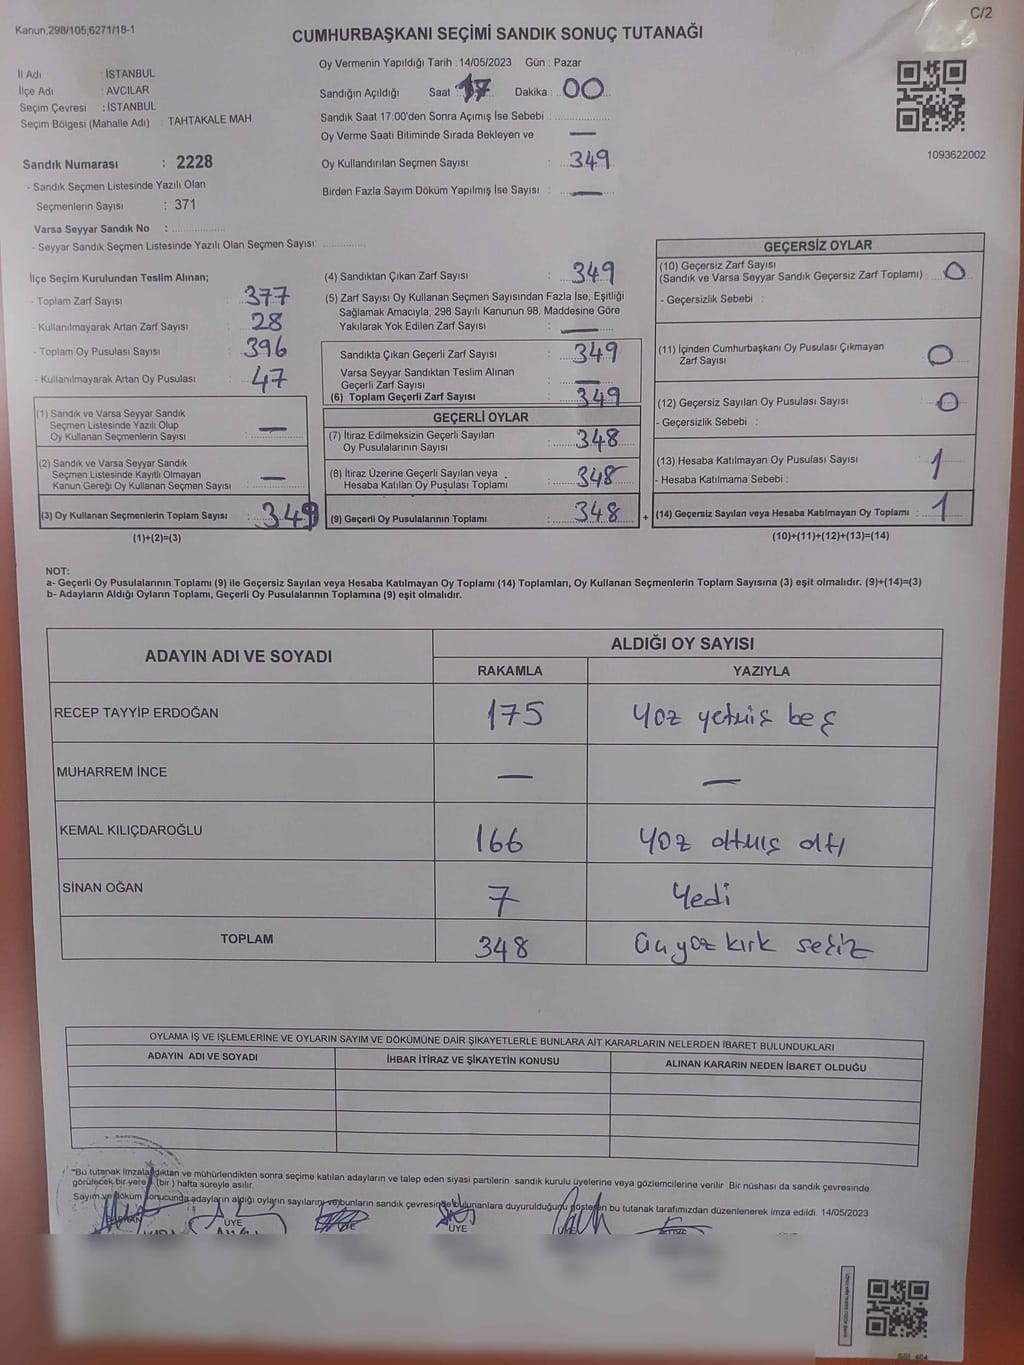 C/2
Kanun,298/105,6271/18-1
CUMHURBAŞKANI SEÇİMİ SANDIK SONUÇ TUTANAĞI
İl Adı : İSTANBUL
İlçe Adı : AVCILAR
Seçim Çevresi : İSTANBUL
Seçim Bölgesi (Mahalle Adı) : TAHTAKALE MAH.
Sandık Numarası : 2228
- Sandık Seçmen Listesinde Yazılı Olan
Seçmenlerin Sayısı : 371
Varsa Seyyar Sandık No : ..............
- Seyyar Sandık Seçmen Listesinde Yazılı Olan Seçmen Sayısı: ..............
Oy Vermenin Yapıldığı Tarih : 14/05/2023 Gün : Pazar
Sandığın Açıldığı Saat : 17 Dakika : 00
Sandık Saat 17:00'den Sonra Açımış İse Sebebi : ..............
Oy Verme Saati Bitiminde Sırada Bekleyen ve —
Oy Kullandırılan Seçmen Sayısı : 349
Birden Fazla Sayım Döküm Yapılmış İse Sayısı : —
1093622002
İlçe Seçim Kurulundan Teslim Alınan;
- Toplam Zarf Sayısı : 377
- Kullanılmayarak Artan Zarf Sayısı : 28
- Toplam Oy Pusulası Sayısı : 396
- Kullanılmayarak Artan Oy Pusulası : 47
(1) Sandık ve Varsa Seyyar Sandık
Seçmen Listesinde Yazılı Olup
Oy Kullanan Seçmenlerin Sayısı : —
(2) Sandık ve Varsa Seyyar Sandık
Seçmen Listesinde Kayıtlı Olmayan
Kanun Gereği Oy Kullanan Seçmen Sayısı : —
(3) Oy Kullanan Seçmenlerin Toplam Sayısı : 349
(1)+(2)=(3)
(4) Sandıktan Çıkan Zarf Sayısı : 349
(5) Zarf Sayısı Oy Kullanan Seçmen Sayısından Fazla İse, Eşitliği
Sağlamak Amacıyla; 298 Sayılı Kanunun 98. Maddesine Göre
Yakılarak Yok Edilen Zarf Sayısı : —
Sandıkta Çıkan Geçerli Zarf Sayısı : 349
Varsa Seyyar Sandıktan Teslim Alınan
Geçerli Zarf Sayısı : —
(6) Toplam Geçerli Zarf Sayısı : 349
GEÇERLİ OYLAR
(7) İtiraz Edilmeksizin Geçerli Sayılan
Oy Pusulalarının Sayısı : 348
(8) İtiraz Üzerine Geçerli Sayılan veya
Hesaba Katılan Oy Pusulası Toplamı : 348
(9) Geçerli Oy Pusulalarının Toplamı : 348
+
GEÇERSİZ OYLAR
(10) Geçersiz Zarf Sayısı
(Sandık ve Varsa Seyyar Sandık Geçersiz Zarf Toplamı) : 0
- Geçersizlik Sebebi :
(11) İçinden Cumhurbaşkanı Oy Pusulası Çıkmayan
Zarf Sayısı : 0
(12) Geçersiz Sayılan Oy Pusulası Sayısı : 0
- Geçersizlik Sebebi :
(13) Hesaba Katılmayan Oy Pusulası Sayısı : 1
- Hesaba Katılmama Sebebi :
(14) Geçersiz Sayılan veya Hesaba Katılmayan Oy Toplamı : 1
(10)+(11)+(12)+(13)=(14)
NOT:
a- Geçerli Oy Pusulalarının Toplamı (9) ile Geçersiz Sayılan veya Hesaba Katılmayan Oy Toplamı (14) Toplamları, Oy Kullanan Seçmenlerin Toplam Sayısına (3) eşit olmalıdır. (9)+(14)=(3)
b- Adayların Aldığı Oyların Toplamı, Geçerli Oy Pusulalarının Toplamına (9) eşit olmalıdır.
ADAYIN ADI VE SOYADI
ALDIĞI OY SAYISI
RAKAMLA YAZIYLA
RECEP TAYYİP ERDOĞAN 175 Yüz yetmiş beş
MUHARREM İNCE — —
KEMAL KILIÇDAROĞLU 166 Yüz altmış altı
SİNAN OĞAN 7 Yedi
TOPLAM 348 üçyüz kırk sekiz
OYLAMA İŞ VE İŞLEMLERİNE VE OYLARIN SAYIM VE DÖKÜMÜNE DAİR ŞİKAYETLERLE BUNLARA AİT KARARLARIN NELERDEN İBARET BULUNDUKLARI
ADAYIN ADI VE SOYADI İHBAR İTİRAZ VE ŞİKAYETİN KONUSU ALINAN KARARIN NEDEN İBARET OLDUĞU
"Bu tutanak imzalandıktan ve mühürlendikten sonra seçime katılan adayların ve talep eden siyasi partilerin sandık kurulu üyelerine veya gözlemcilerine verilir Bir nüshası da sandık çevresinde
görülecek bir yere (bir) hafta süreyle asılır.
Sayım ve döküm sonucunda adayların aldığı oyların sayılarını ve bunların sandık çevresinde bulunanlara duyurulduğunu gösteren bu tutanak tarafımızdan düzenlenerek imza edildi. 14/05/2023
BAŞKAN ÜYE ÜYE ÜYE